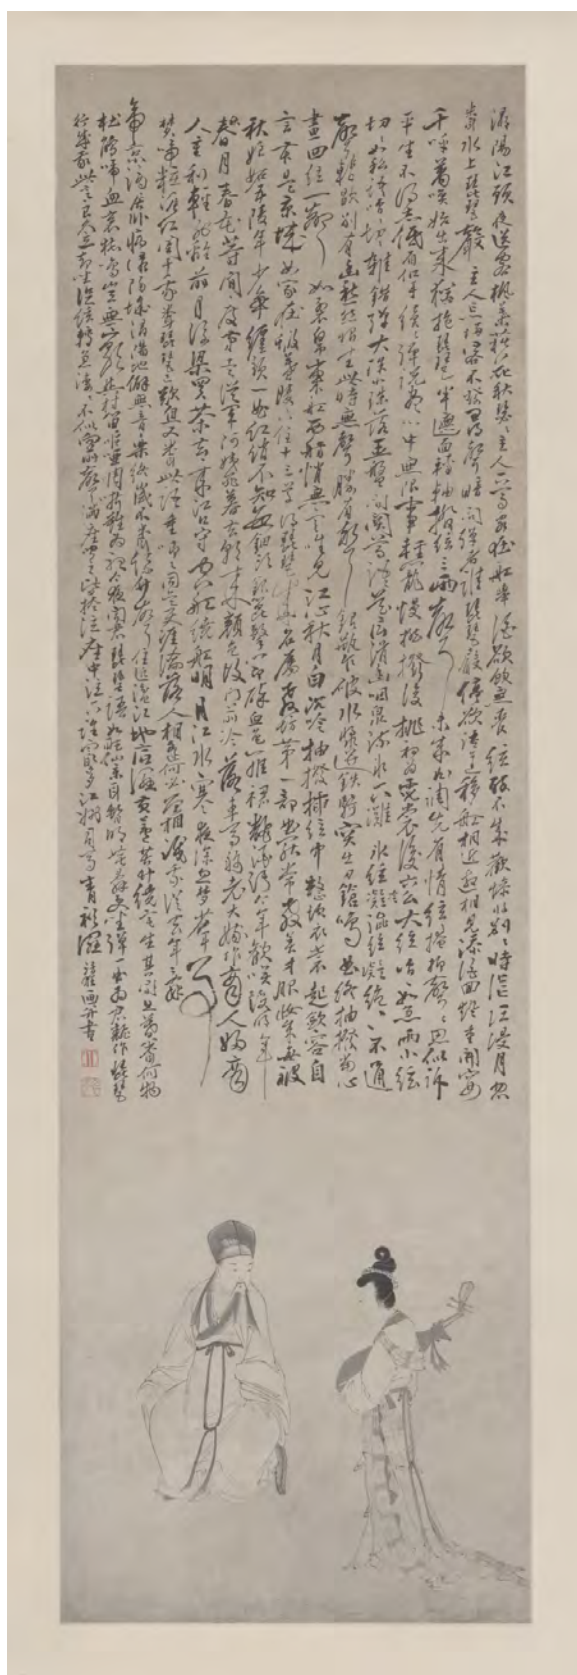 潯陽江頭夜送客楓葉荻花秋瑟〻主人下馬客在船舉酒欲飲無管絃醉不成歡慘將別〻時茫〻江浸月忽
聞水上琵琶聲主人忘歸客不發尋聲暗問彈者誰琵琶聲停欲語遲移船相近邀相見添酒回燈重開宴
千呼萬喚始出來猶抱琵琶半遮面轉軸撥絃三兩聲未成曲調先有情絃〻掩抑聲〻思似訴
平生不得志低眉信手續〻彈說盡心中無限事輕攏慢撚撥復挑初為霓裳後六么大絃嘈〻如急雨小絃
切〻如私語嘈〻切〻雜錯彈大珠小珠落玉盤間關鶯語花底滑幽咽泉流水下灘水絃凝絕〻不通
聲暫歇別有幽愁暗恨生此時無聲勝有聲銀瓶乍破水漿迸鐵騎突出刀鎗鳴曲終抽撥當心
畫四絃一聲如裂帛東船西舫悄無言唯見江心秋月白沉吟抽撥插絃中整頓衣裳起斂容自
言本是京城女家在蝦蟆陵下住十三學得琵琶成名屬教坊第一部曲罷常教善才服妝成每被
秋娘妬五陵年少爭纏頭一曲紅綃不知數鈿頭銀篦擊節碎血色羅裙翻酒污今年歡笑復明年
秋月春花等閒度弟走從軍阿姨死暮去朝來顏色故門前冷落車馬稀老大嫁作商人婦商
人重利輕別離前月浮梁買茶去〻來江口守空船繞船明月江水寒夜深忽夢少年事
夢啼粧淚紅闌干我聞琵琶已歎息又聞此語重唧〻同是天涯淪落人相逢何必曾相識我從去年辭
帝京謫居臥病潯陽城潯陽地僻無音樂終歲不聞絲竹聲住近湓江地低濕黃蘆苦竹繞宅生其間旦暮聞何物
杜鵑啼血哀猿鳴豈無山歌與村笛嘔啞嘲哳難為聽今夜聞君琵琶語如聽仙樂耳暫明莫辭更坐彈一曲為君翻作琵琶
行感我此言良久立却坐促絃〻轉急淒〻不似向前聲滿座聞之皆掩泣座中泣下誰最多江州司馬青衫濕